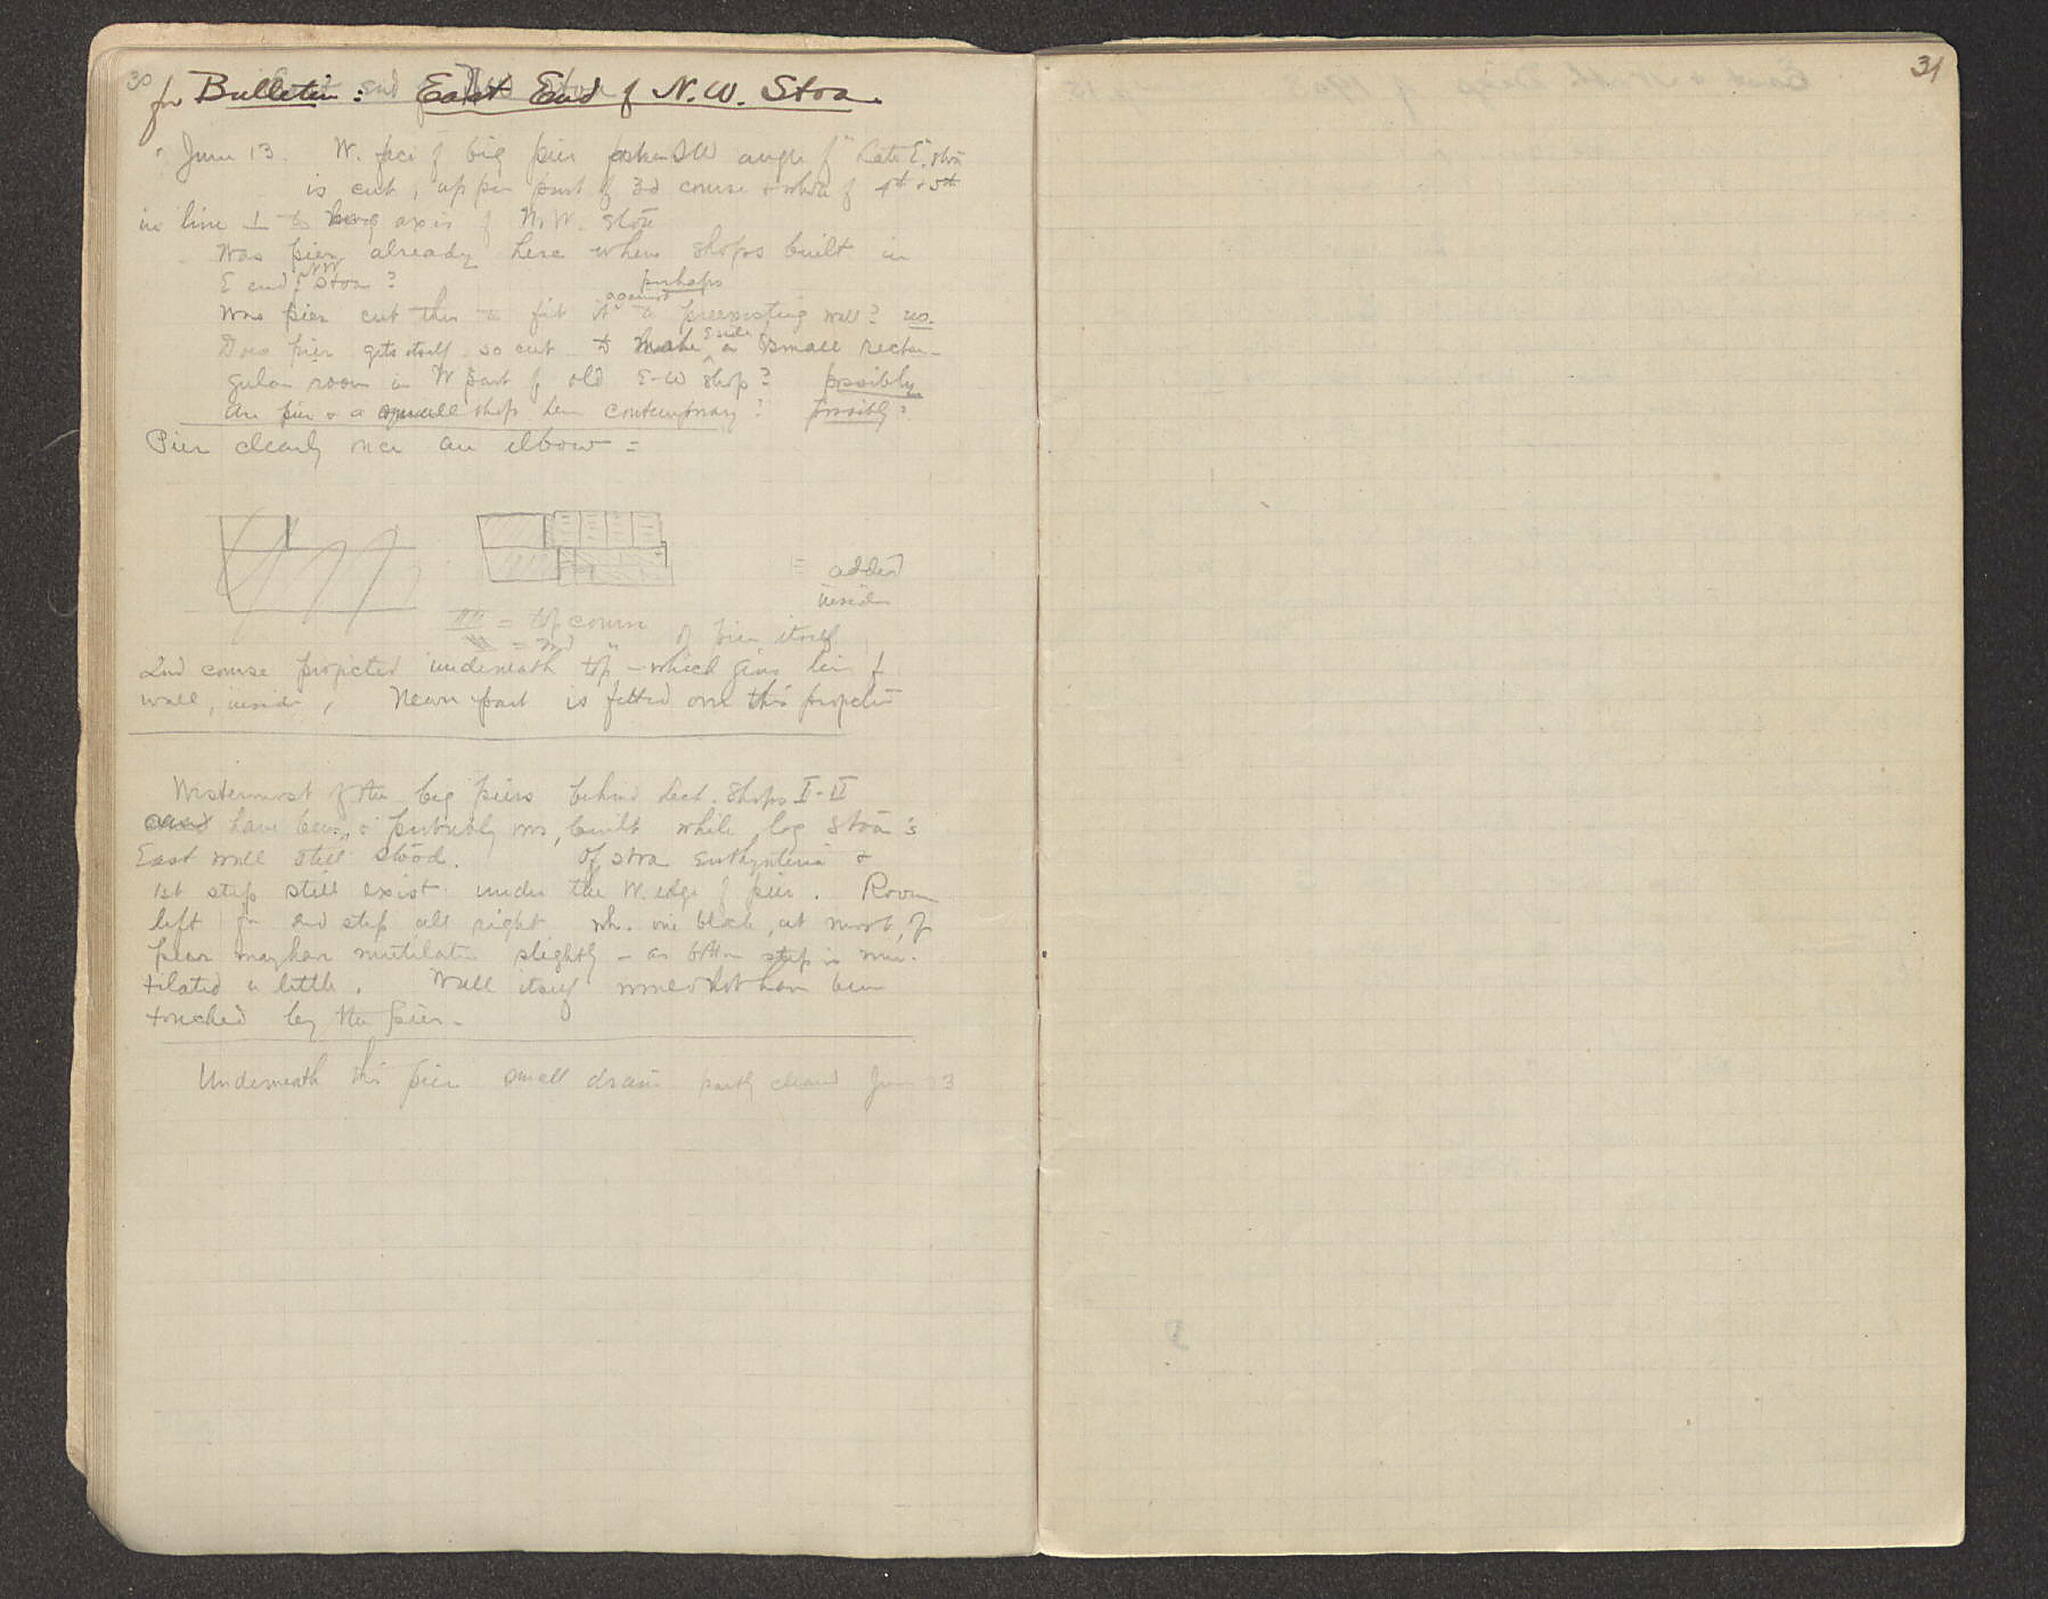 30
for Bulletin: East End of N.W. Stoa.
June 13. W. face of big pier SW angle of "Late E." stoa
is cut, upper part of 3d course & whole of 4th & 5th
in line ⊥ to long axis of N.W. stoa
Was pier already here when shops built in
E end of NW Stoa?
perhaps
Was pier cut thus to fit it against a preexisting wall? no.
Does pier gets itself so cut to make E side a small rectan-
gular room in W part of old E-W shop? possibly
Are pier & a small shop here contemporary? possibly?
Pier clearly once an elbow =
= added
inside
= top course
= 2nd " of pier itself
2nd course projected underneath top - which gives line of
wall, inside, Newer part is fitted over this projection
Westernmost of the big piers behind Lech. Shops II-II
have been, & probably was, built while log Stoa's
East wall still stood. Of stoa euthynteria &
1st step still exist under the W. edge of pier. Room
left for 2nd step all right wh. one block, at most, of
pier may have mutilated slightly - as bottom step is mu-
tilated a little. Wall itself would not have been
touched by the pier -
Underneath this pier small drain partly cleared June 13
31